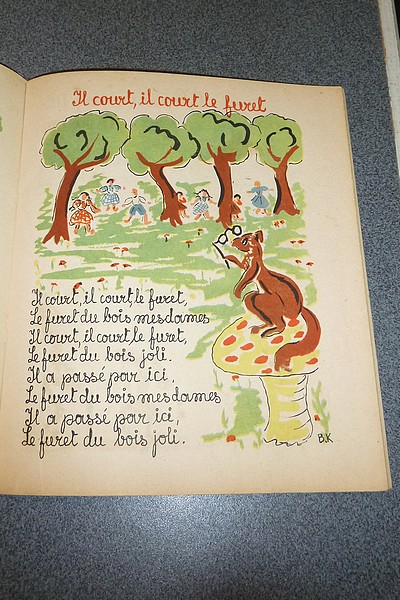 Il court, il court le furet
Il court, il court, le furet,
Le furet du bois mesdames
Il court, il court, le furet,
Le furet du bois joli.
Il a passé par ici,
Le furet du bois mesdames
Il a passé par ici,
Le furet du bois joli.
B.K